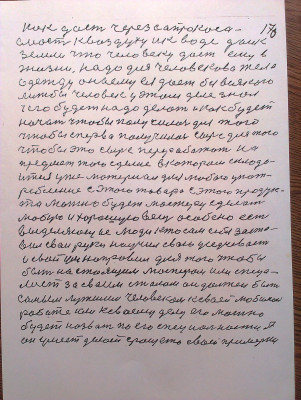 как даст через атрокоса-
мост к воздуху и к воде даже
земли что человеку даст ему в
жизни, надо для человекова тела
одежду он ему её дает бы всякого
чтобы человек у этом деле знал
чего будет надо делат и как будет
начат чтобы получилас для того
чтобы сперва получилас сырё для того
чтобы это сырё переработат на
предмет того сделие в котором
ится уже материал для любого упот-
ребление с этого товара с этого продук-
та можно будем мастеру сделат
любую и хорошую вещ особено ест
выделяющие люди кто сам себя заста-
вил сваи руки научил сваи
и свой ум направил для того чтобы
быт на стоящим мастером или специ-
лист за своим станом он должен быт
самым лутшим человеком к своей любимой
работе или к своему делу его можно
будет назват по его специалности. Я
он умеет делат срощето свои примерки
178